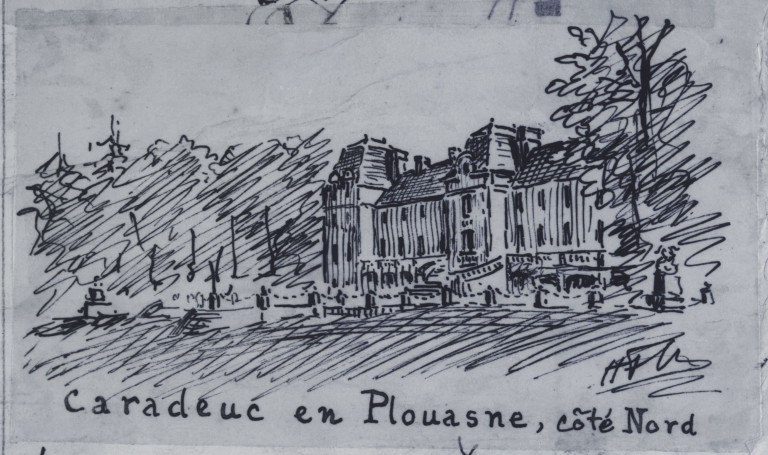 Caradeuc en Plouasne, côté Nord